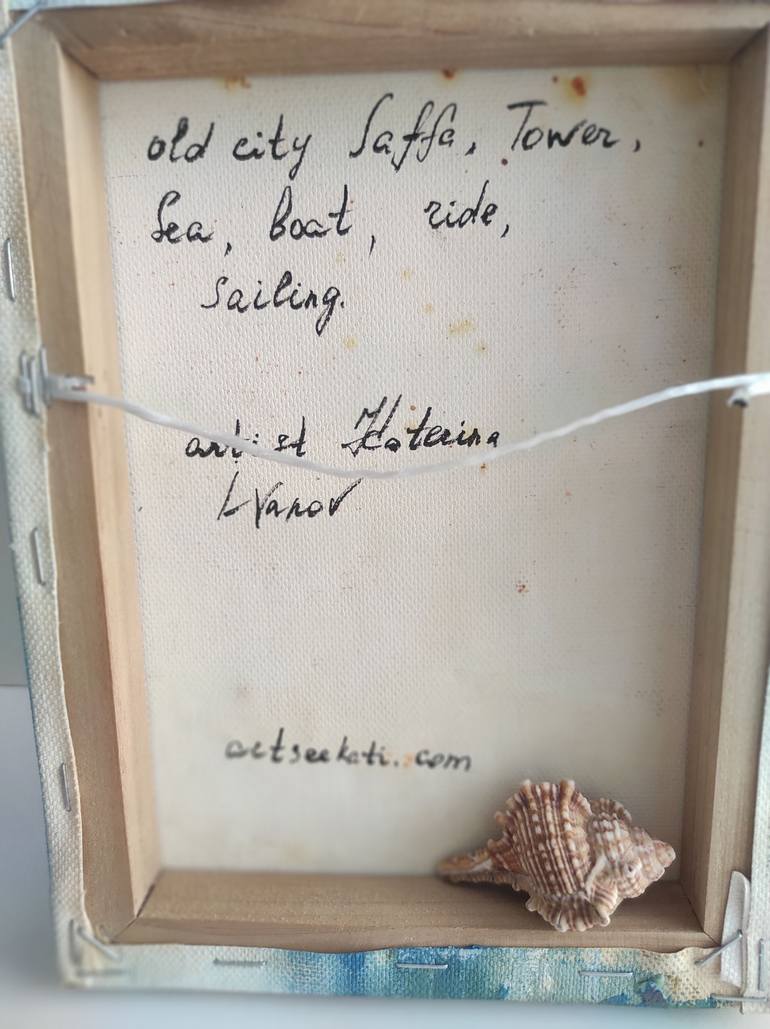 old city Jaffa, Tower,
Sea, boat, ride,
Sailing.
artist Katerina
Ivanov
artseekati.com